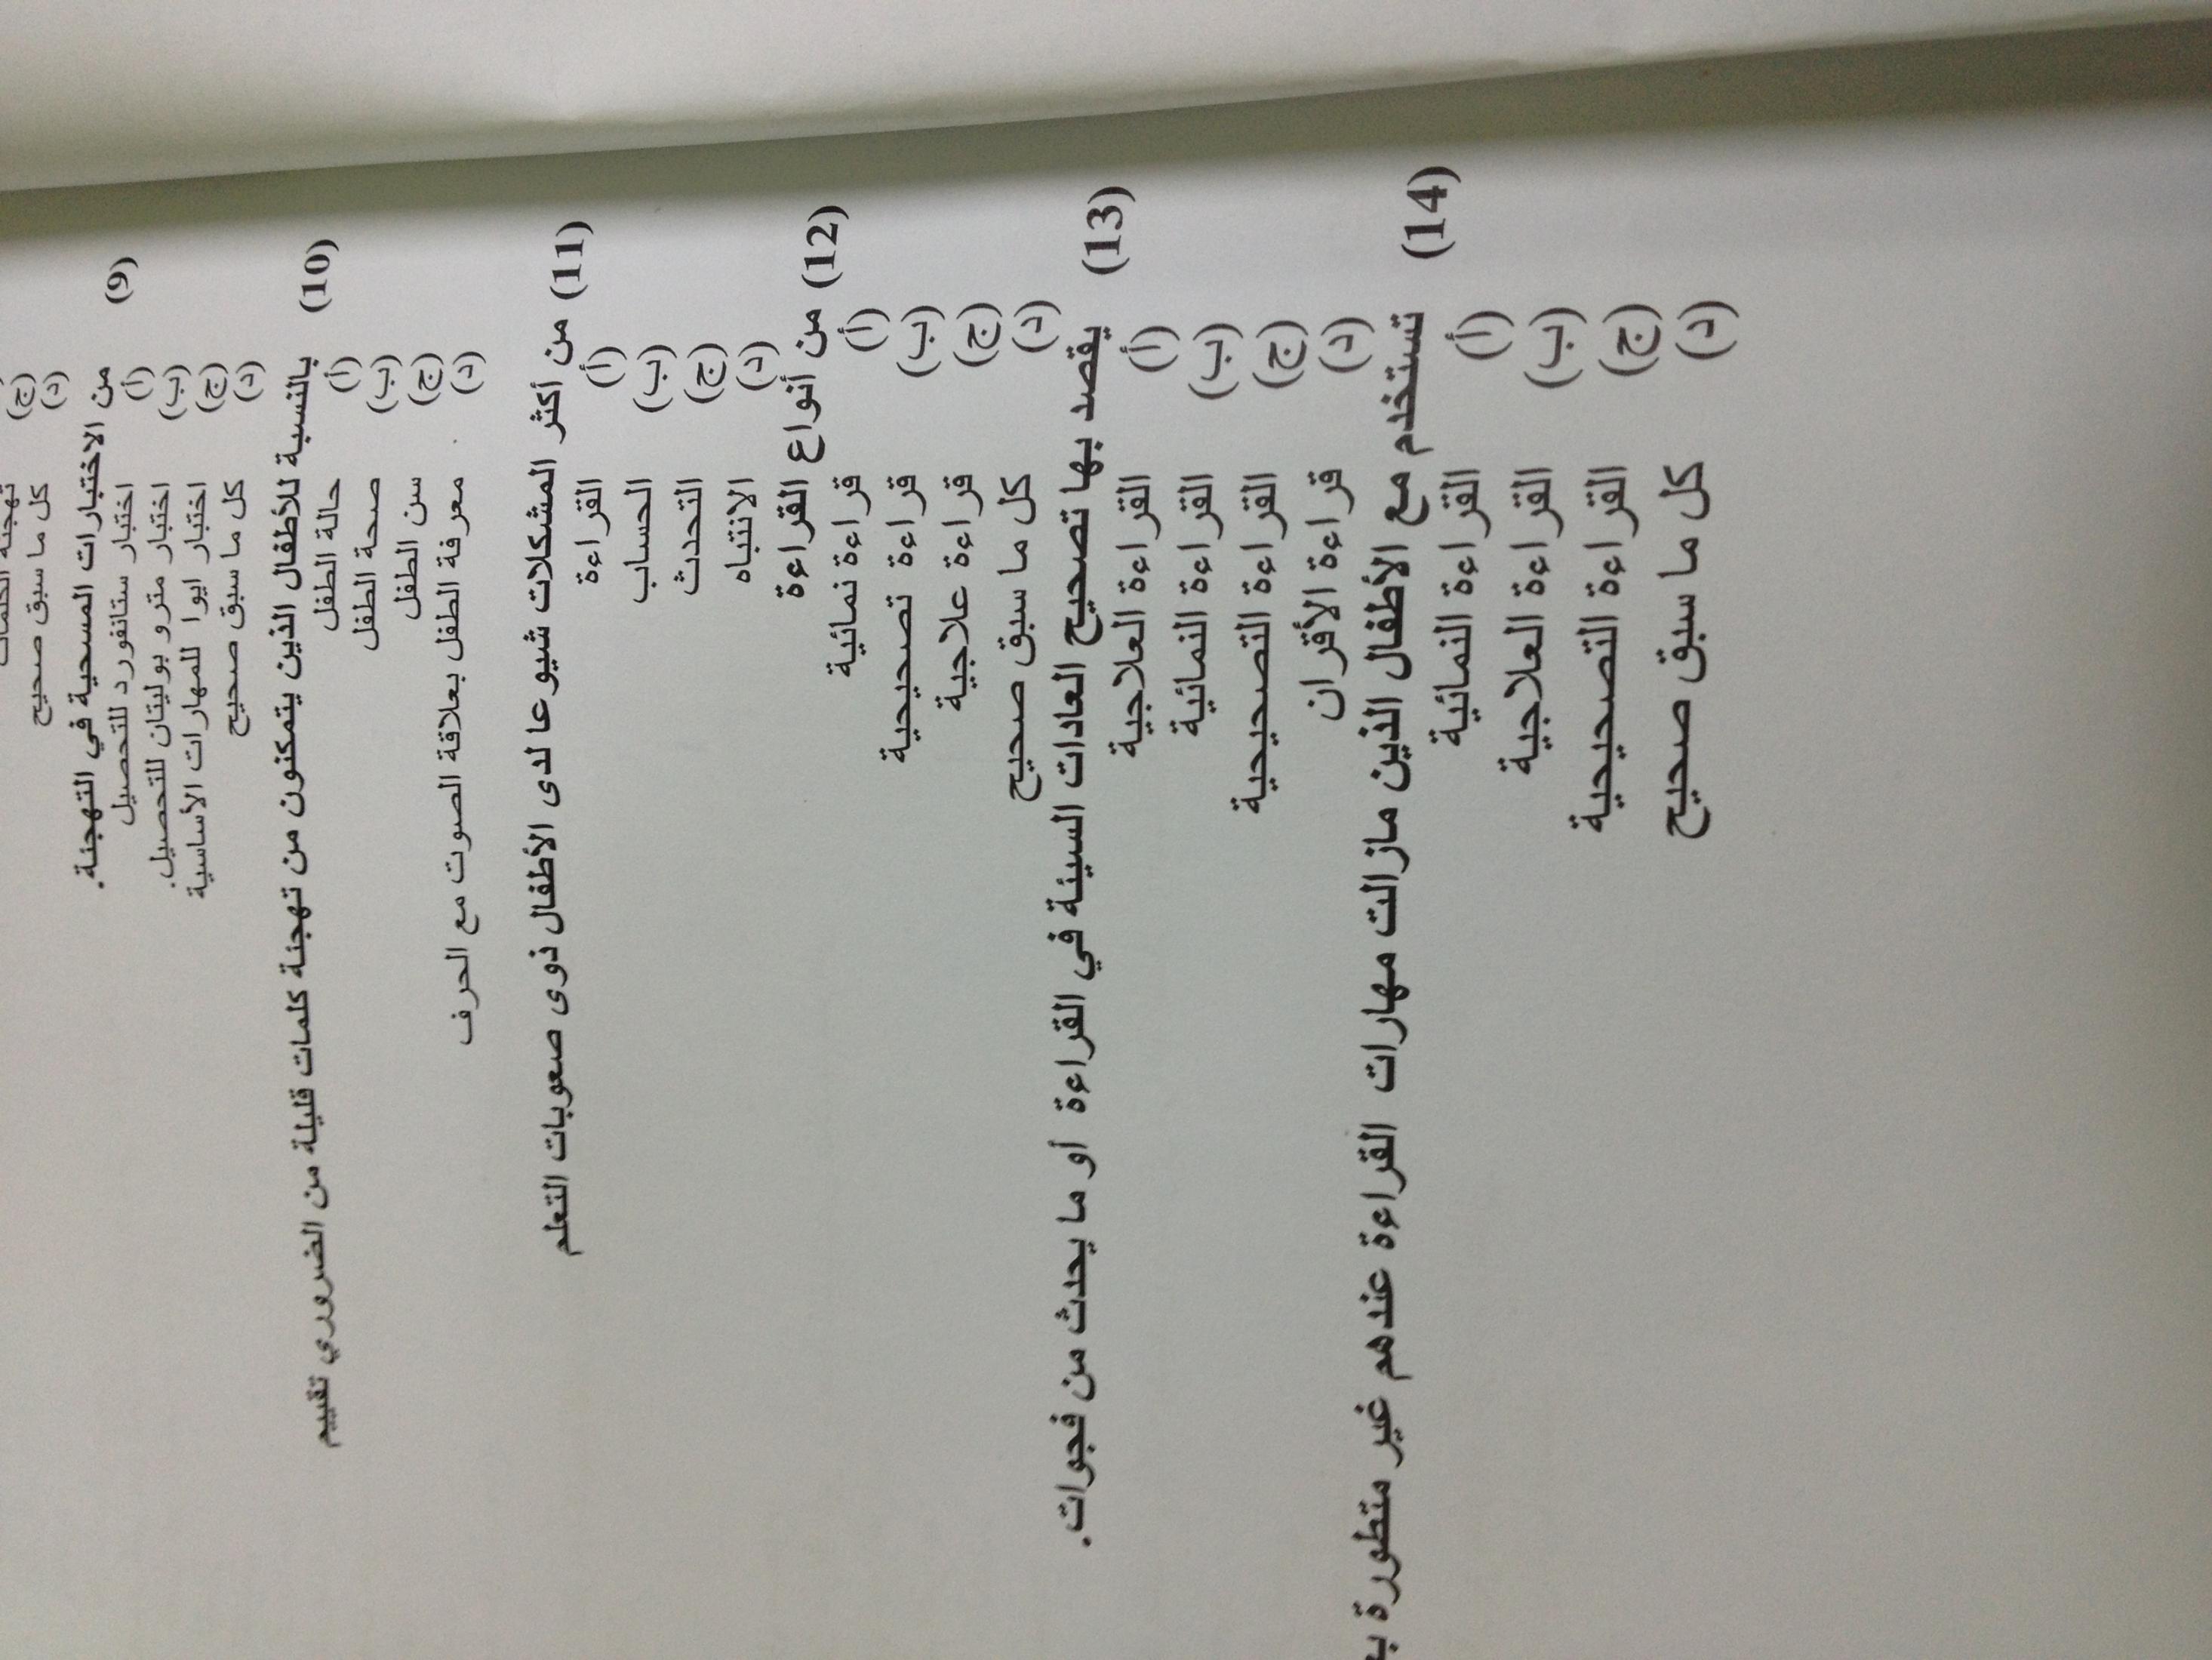 (ج) تهجئة الكلمات
(د) كل ما سبق صحيح
(9) من الاختبارات المسحية في التهجئة.
(أ) اختبار ستانفورد للتحصيل
(ب) اختبار مترو بوليتان للتحصيل.
(ج) اختبار ايوا للمهارات الأساسية
(د) كل ما سبق صحيح
(10) بالنسبة للأطفال الذين يتمكنون من تهجئة كلمات قليلة من الضروري تقييم
(أ) حالة الطفل
(ب) صحة الطفل
(ج) سن الطفل
(د) معرفة الطفل بعلاقة الصوت مع الحرف
(11) من أكثر المشكلات شيوعا لدى الأطفال ذوى صعوبات التعلم
(أ) القراءة
(ب) الحساب
(ج) التحدث
(د) الانتباه
(12) من أنواع القراءة
(أ) قراءة نمائية
(ب) قراءة تصحيحية
(ج) قراءة علاجية
(د) كل ما سبق صحيح
(13) يقصد بها تصحيح العادات السيئة في القراءة أو ما يحدث من فجوات.
(أ) القراءة العلاجية
(ب) القراءة النمائية
(ج) القراءة التصحيحية
(د) قراءة الأقران
(14) تستخدم مع الأطفال الذين مازالت مهارات القراءة عندهم غير متطورة
(أ) القراءة النمائية
(ب) القراءة العلاجية
(ج) القراءة التصحيحية
(د) كل ما سبق صحيح